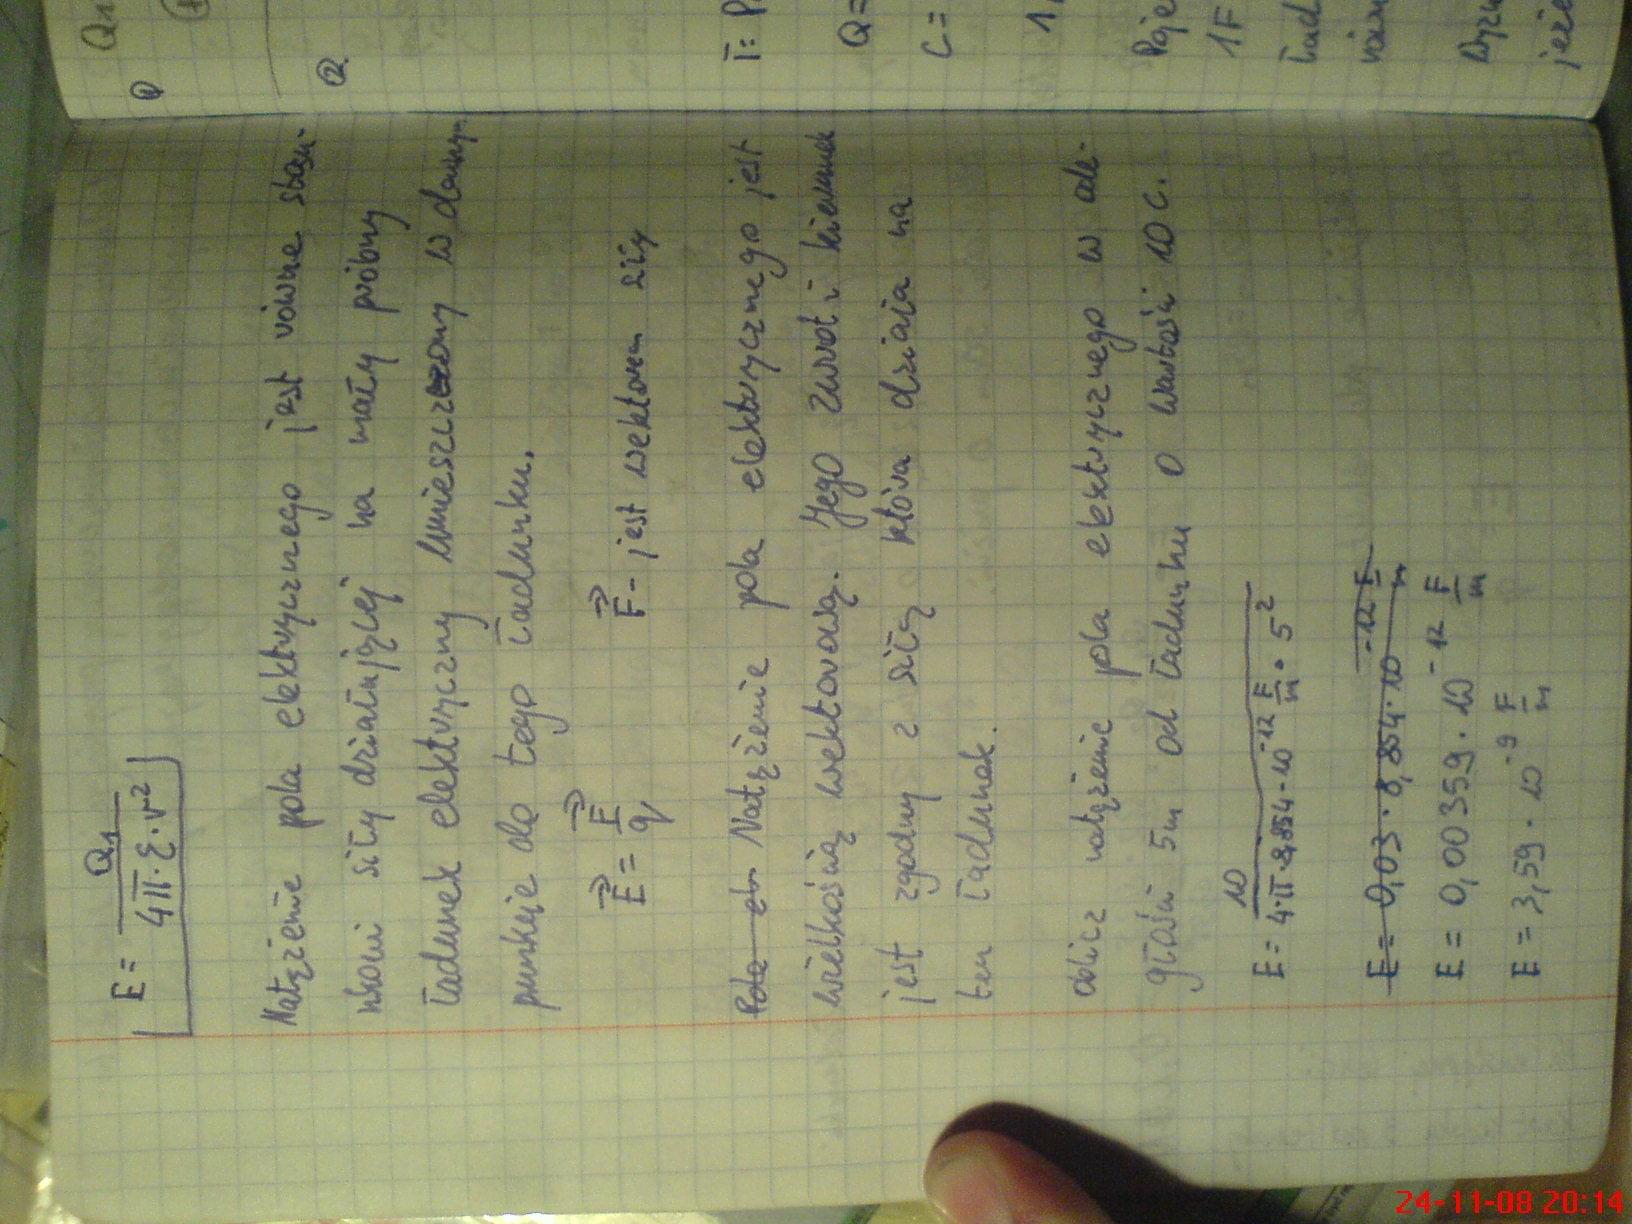 E = Q1 / 4π·ε·r²
Natężenie pola elektrycznego jest równe stosun-
kowi siły działającej na mały próbny
ładunek elektryczny umieszczony w danym
punkcie do tego ładunku.
E = F / q F - jest wektorem siły
Natężenie pola elektrycznego jest
wielkością wektorową. Jego zwrot i kierunek
jest zgodny z siłą która działa na
ten ładunek.
oblicz natężenie pola elektrycznego w odle-
głości 5m od ładunku o wartości 10 C.
E = 10 / 4·π·8,854·10⁻¹² F/m · 5²
E = 0,03 · 8,854 · 10⁻¹² F/m
E = 0,00359 · 10⁻¹² F/m
E = 3,59 · 10⁻⁹ F/m
Q1
Q=
C=
1F
24-11-08 20:14